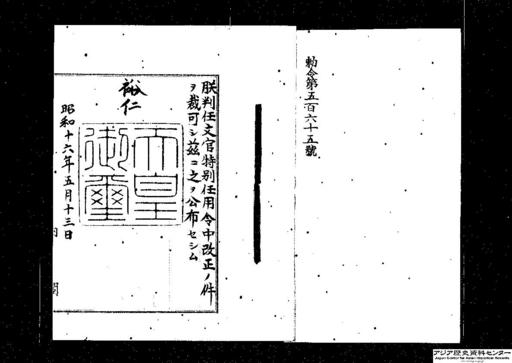 勅令第五百六十五號
朕判任文官特別任用令中改正ノ件
ヲ裁可シ茲ニ之ヲ公布セシム
裕仁
天皇
御璽
昭和十六年五月十三日
アジア歴史資料センター
Japan Center for Asian Historical Records